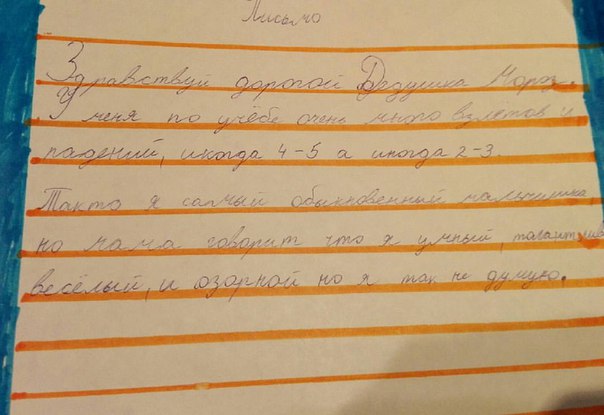 Письмо
Здравствуй дорогой Дедушка Мороз.
У меня по учёбе очень много взлетов и
падений, иногда 4-5 а иногда 2-3.
Такто я самый обыкновенный мальчишка,
но мама говорит что я умный,
весёлый, и озорной но я так не думую.